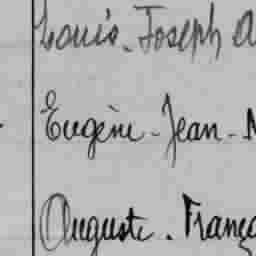 Louis-Joseph A
Eugène-Jean-M
Auguste-Franço